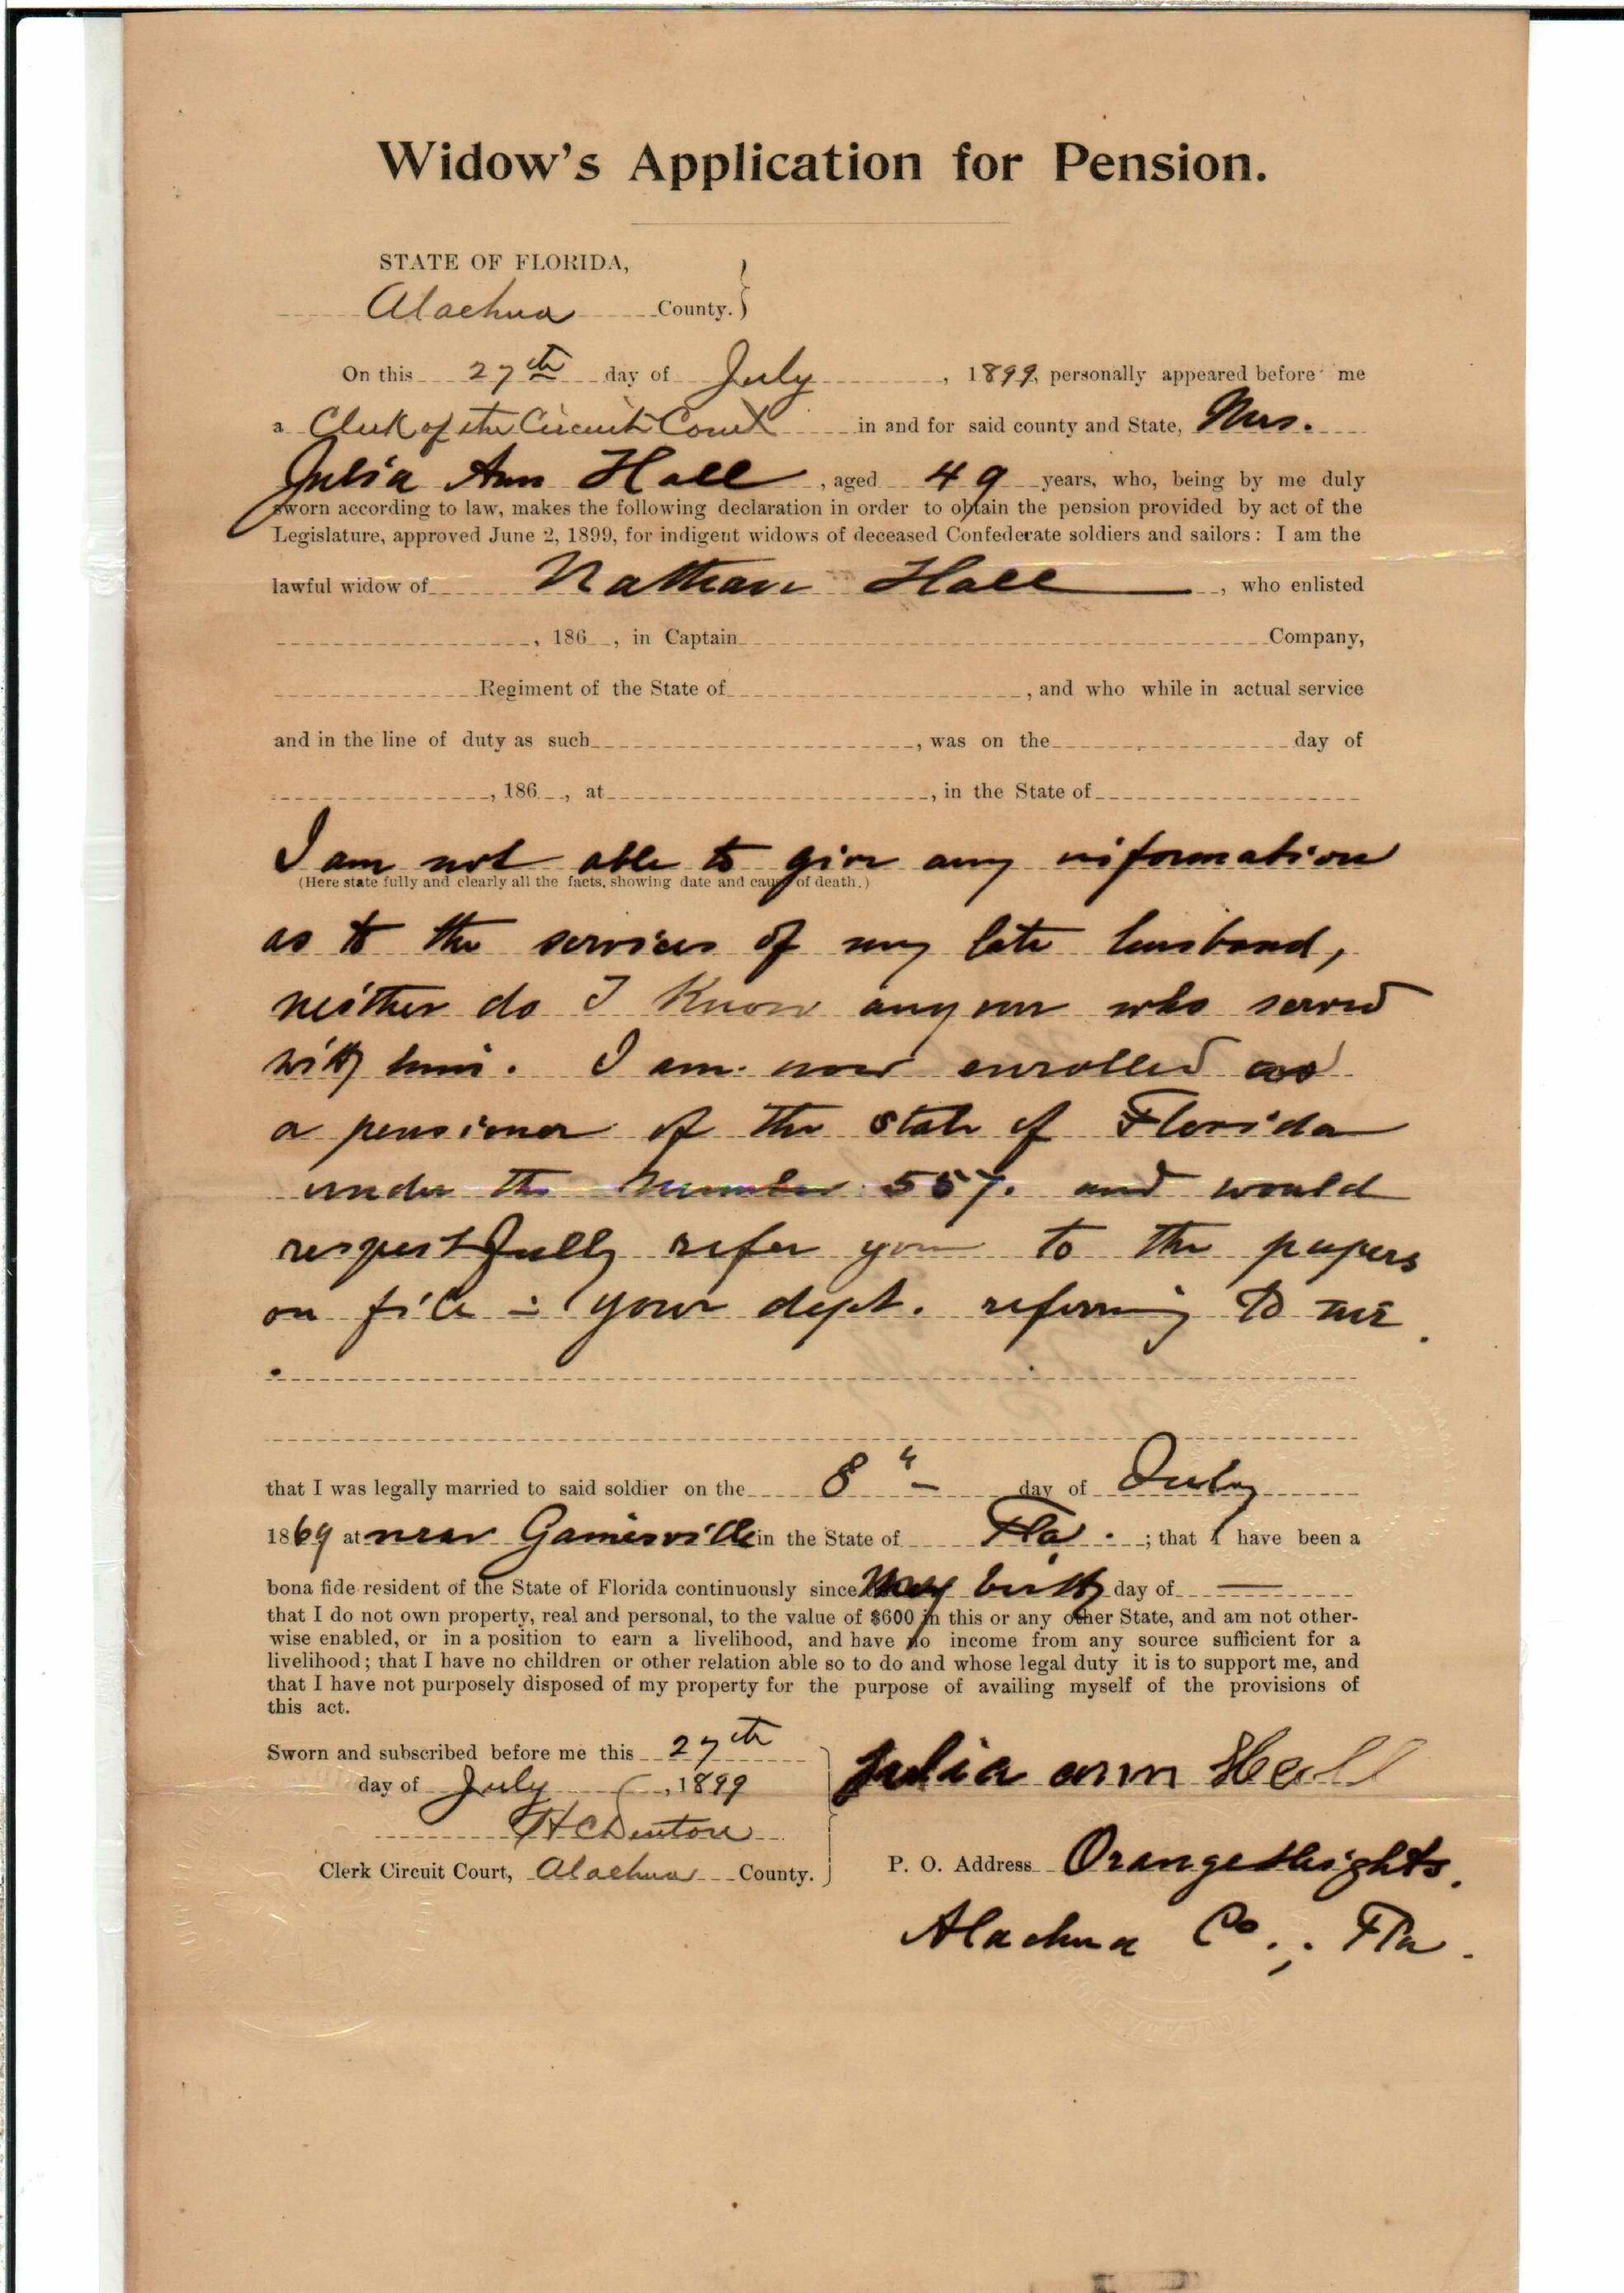 Widow's Application for Pension.
STATE OF FLORIDA,
Alachua County.
On this 27th day of July, 1899, personally appeared before me
a Clerk of the Circuit Court in and for said county and State, Mrs.
Julia Ann Hall, aged 49 years, who, being by me duly
sworn according to law, makes the following declaration in order to obtain the pension provided by act of the
Legislature, approved June 2, 1899, for indigent widows of deceased Confederate soldiers and sailors: I am the
lawful widow of Nathan Hall, who enlisted
, 186 , in Captain Company,
Regiment of the State of , and who while in actual service
and in the line of duty as such , was on the day of
, 186 , at , in the State of
I am not able to give any information
(Here state fully and clearly all the facts, showing date and cause of death.)
as to the services of my late husband,
neither do I know anyone who served
with him. I am now enrolled as
a pensioner of the State of Florida
under the number 557. and would
respectfully refer you to the papers
on file in your dept. referring to me.
that I was legally married to said soldier on the 8" day of July
1869 at near Gainesville in the State of Fla. ; that I have been a
bona fide resident of the State of Florida continuously since my birth day of —
that I do not own property, real and personal, to the value of $600 in this or any other State, and am not other-
wise enabled, or in a position to earn a livelihood, and have no income from any source sufficient for a
livelihood; that I have no children or other relation able so to do and whose legal duty it is to support me, and
that I have not purposely disposed of my property for the purpose of availing myself of the provisions of
this act.
Sworn and subscribed before me this 27th
day of July, 1899
H C Denton
Clerk Circuit Court, Alachua County.
Julia ann Hall
P. O. Address Orange Heights.
Alachua Co., Fla.